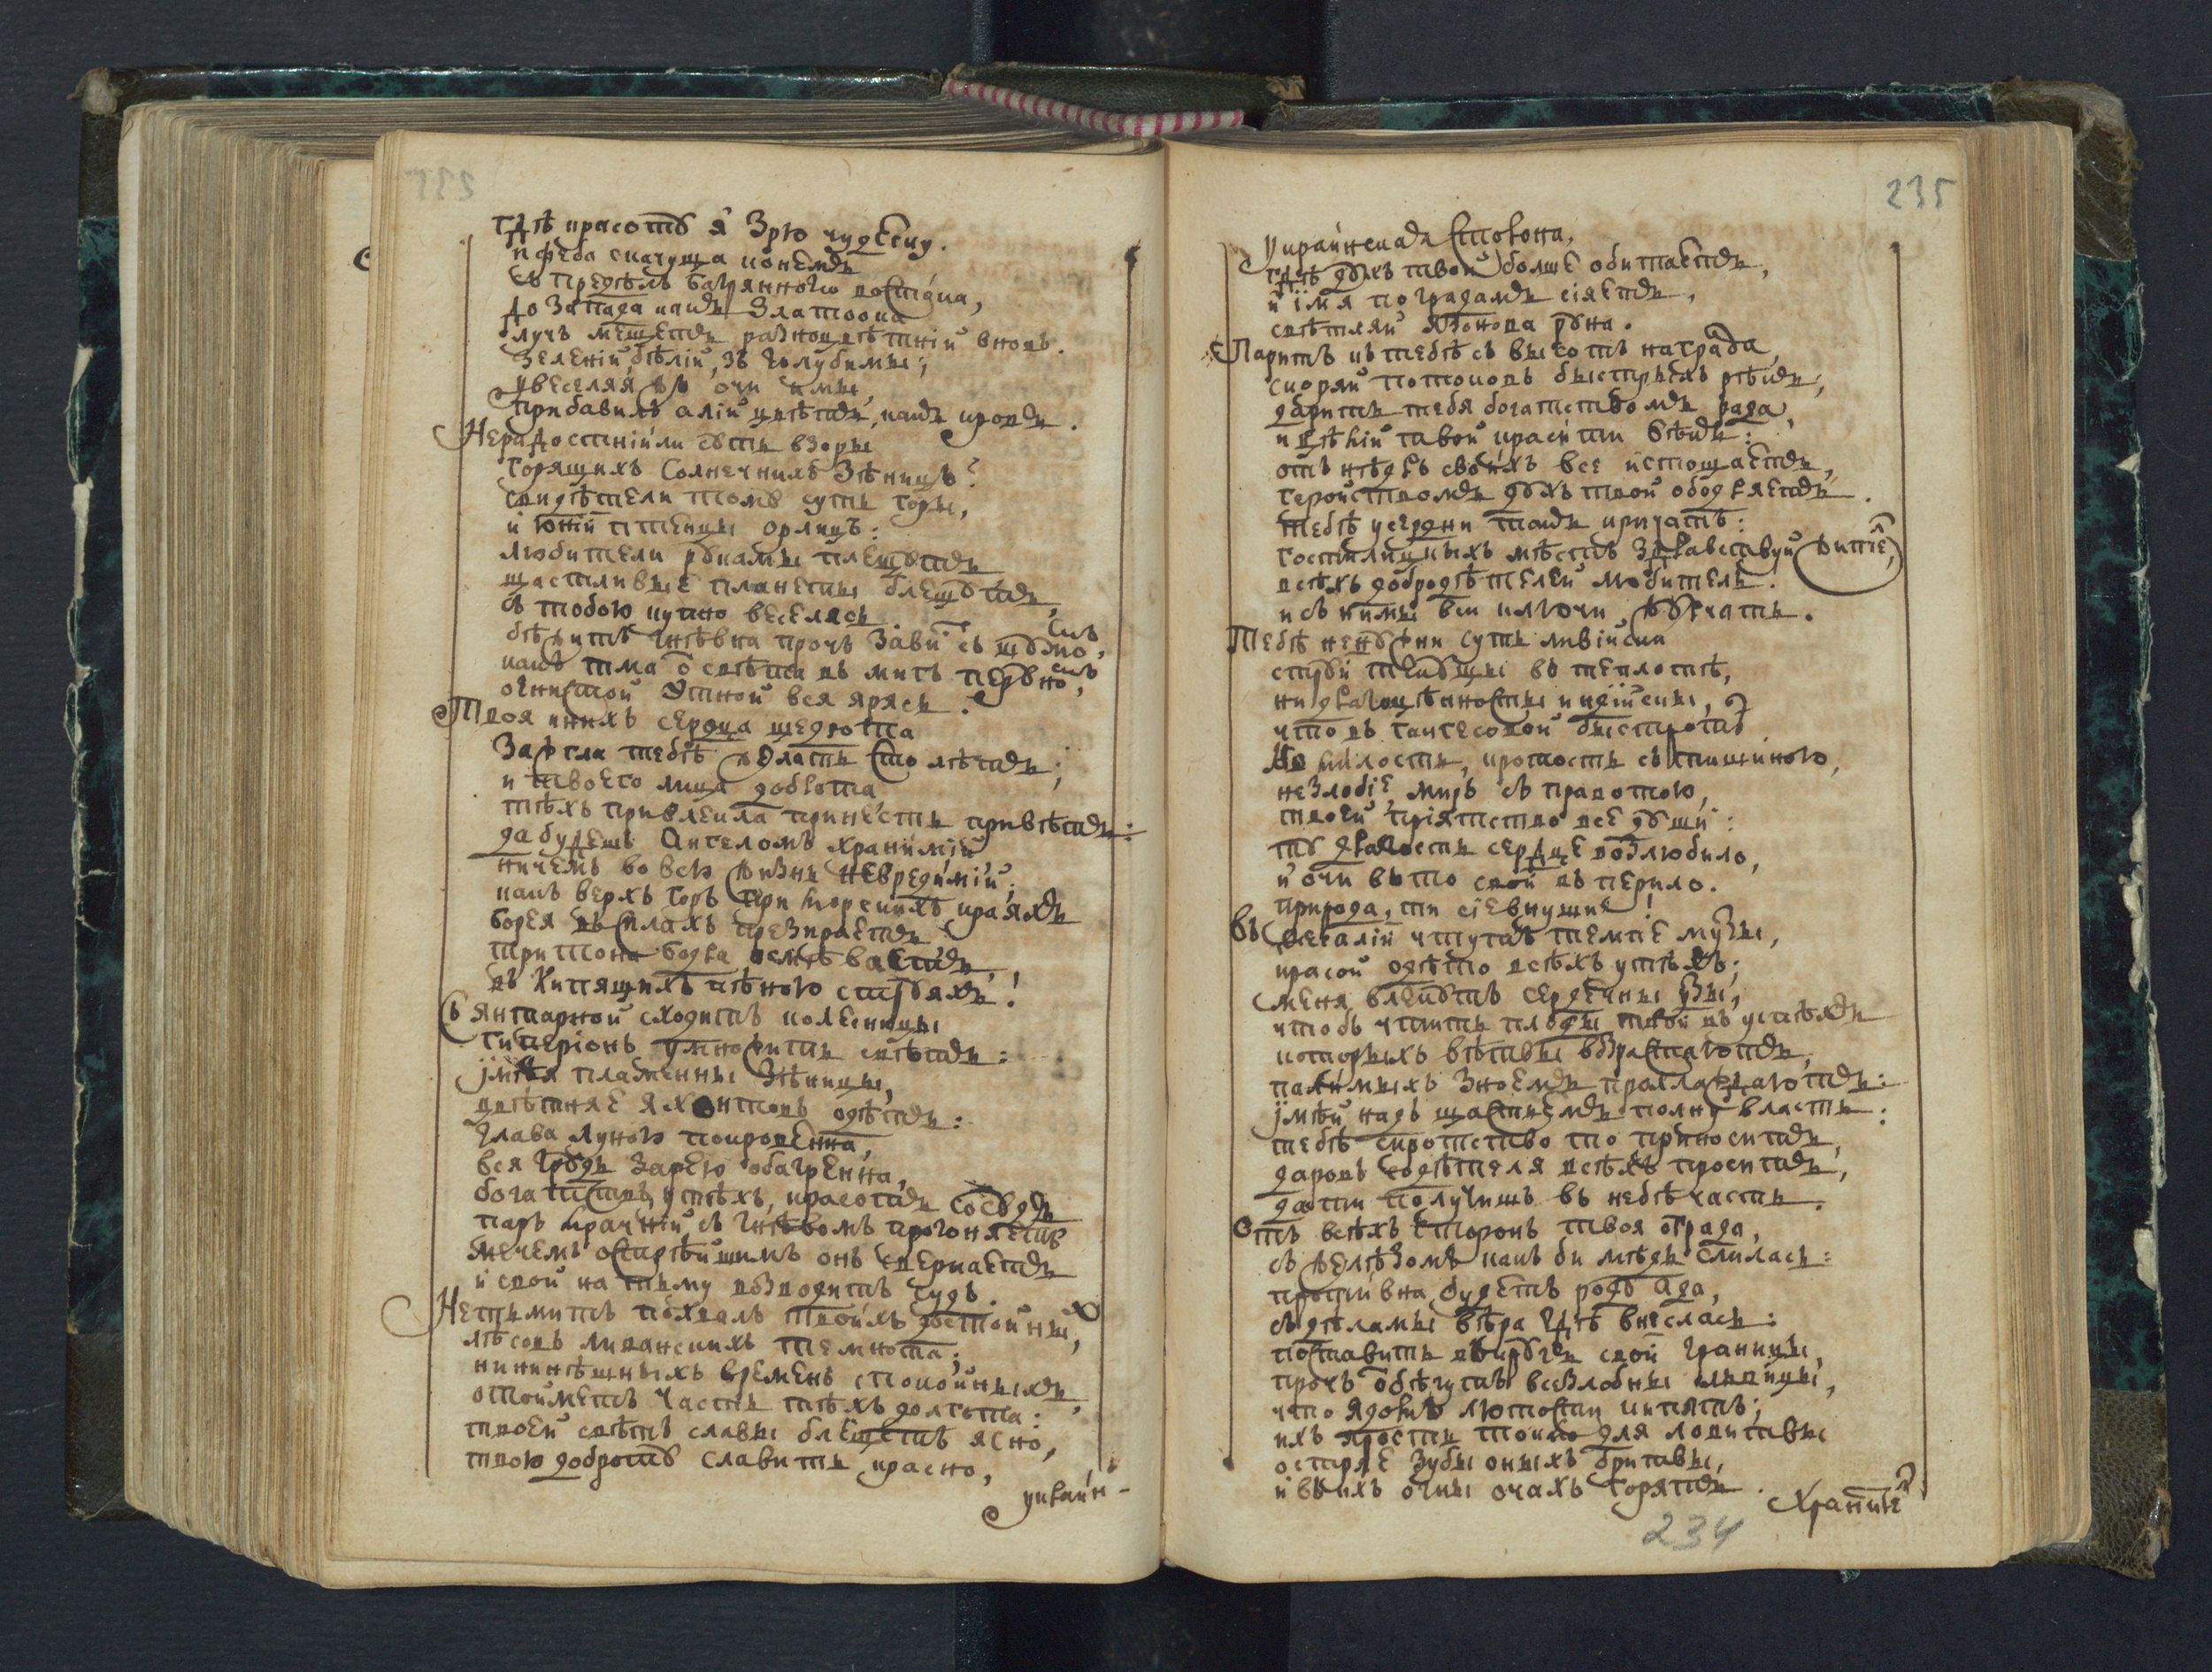 гдѣ красотꙋ я зрю чудесну.
и феба скачуща конемъ
съ предѣлъ багрянного востока,
до запада какъ златоока
лучъ мещетъ разноцвѣтній вновъ.
зеленій, бѣлій, зъ голубимы;
увеселяя въ очи имы,
прибавилъ алій цвѣтъ, какъ кровъ.
Нерадостній ли есть взоры
горящихъ солнечнихъ зѣницъ?
свидѣтели томꙋ суть горы,
и юній птенцы орлицъ:
любители рꙋкамы плещꙋтъ
щастливые планеты блещꙋтъ,
съ тобою купно веселясь
бѣжитъ гнѣвна прочъ зави съ шꙋмо,
какъ тма о свѣтѣ въ мигъ
огнистой Этной вся ярясь.
Твоя книхъ сердца щедрота
зажгла тебѣ желать сто лѣтъ;
и твоего лица доброта
тѣхъ привлекла принесть привѣтъ:
да будешъ Ангеломъ хранимій
ничемъ во всю жизнь невредимій;
какъ верхъ горъ при морскихъ краяхъ
борея въ силахъ презираетъ
тритона бодра осмѣваетъ,
въ кипящихъ пѣною стрꙋяхъ!
съ янтарной сходитъ колесницы
гиперіонъ умножить свѣтъ:
імѣя пламенны зѣницы,
цвѣтняе яхонтовъ одѣтъ:
глава луною покровенна,
вся грꙋдь зарею обагренна,
богатствъ, утѣхъ, красотъ сосꙋдъ
паръ мрачній съ гнѣвомъ прогоняетъ
мечемъ острѣйшимъ онъ сверкаетъ
и свой на тьму возводитъ судъ.
Нетьмитъ похвалъ твоихъ достойныхъ,
лѣсовъ ливанскихъ темнота;
нининѣшныхъ временъ спокойныхъ,
отойметъ часть тѣхъ долгота:
твоей свѣтъ славы блещетъ ясно,
твою добротꙋ славитъ красно,
украин-
Украинская сторона,
гдѣ дꙋхъ твой болше обитаетъ,
и імя по градамъ сіяетъ,
свѣтляй язонова рꙋна.
Паритъ къ тебѣ съ высотъ награда,
скоряй потоковъ быстрыхъ рѣкъ,
даритъ тебя богатствомъ рада,
и вѣкій твой красити вѣкъ:
отъ нѣдръ своихъ все истощаетъ,
геройствомъ дꙋхъ твой ободряетъ.
тебѣ усердни такъ кричатъ:
гостилищныхъ мѣстъ здравствуй житіе,
всѣхъ добродѣтелей любитель.
и съ нимы вси ключи жꙋрчатъ.
Тебѣ ненꙋжни суть ливійски
стрꙋи текꙋщы въ теплотѣ,
ни драгоцѣнносты индійскы,
что въ гангесовой быстротѣ
Но милость, кротость съ тишиною,
незлобіе, миръ съ правотою,
твоей пріятство все дꙋши:
тꙋ драгость сердце возлюбило,
и очи въ то свои въперило.
природа, ти сіе внуши!
въ фесалій чтутъ темпе музы,
красой одѣто всѣхъ утѣхъ;
меня влекꙋтъ сердечны узы,
чтобъ чтить плоды твои въ успѣхъ
которыхъ вѣтвы взрастаютъ,
палимыхъ зноемъ прохлаждаютъ:
імѣй надъ щастіемъ полну власть:
тебѣ сиротство то приноситъ,
даровъ содѣтеля всѣхъ проситъ,
да ти получишъ въ небѣ часть.
Отъ всѣхъ сторонъ твоя ограда,
съ желѣзомъ какъ би мѣдь слилась:
противна будетъ родꙋ ада,
съ дѣламы вѣра гдѣ внеслась:
поставитъ вкрꙋгъ свои границы,
прочъ обѣгутъ всезлобны
что ядомъ лютости кипятъ;
ихъ ярость токмо для ловитвы
острие зубы оныхъ бритвы,
и въ ихъ огны очахъ горятъ.
235
234